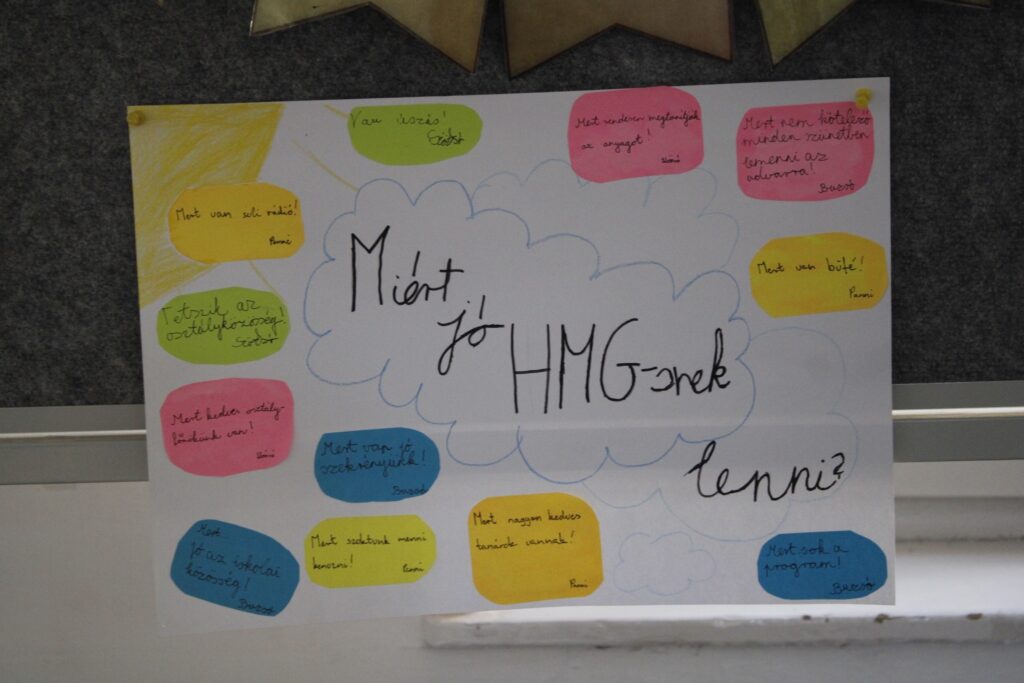 Miért
jó
HMG-snek
lenni?
Van úszás!
Szöbsó
Mert rendesen megtanítják
az anyagot!
Mert nem kötelező
minden szünetben
lemenni az
udvarra!
Buzsó
Mert van suli rádió!
Panni
Mert van büfé!
Panni
Tetszik az
osztályközösség!
Szöbsó
Mert kedves osztály-
főnökünk van!
Mert van jó
szekrényünk!
Buzsó
Mert
Jó az iskolai
közösség!
Buzsó
Mert szoktunk menni
kenuzni!
Panni
Mert nagyon kedves
tanárok vannak!
Panni
Mert sok a
program!
Buzsó